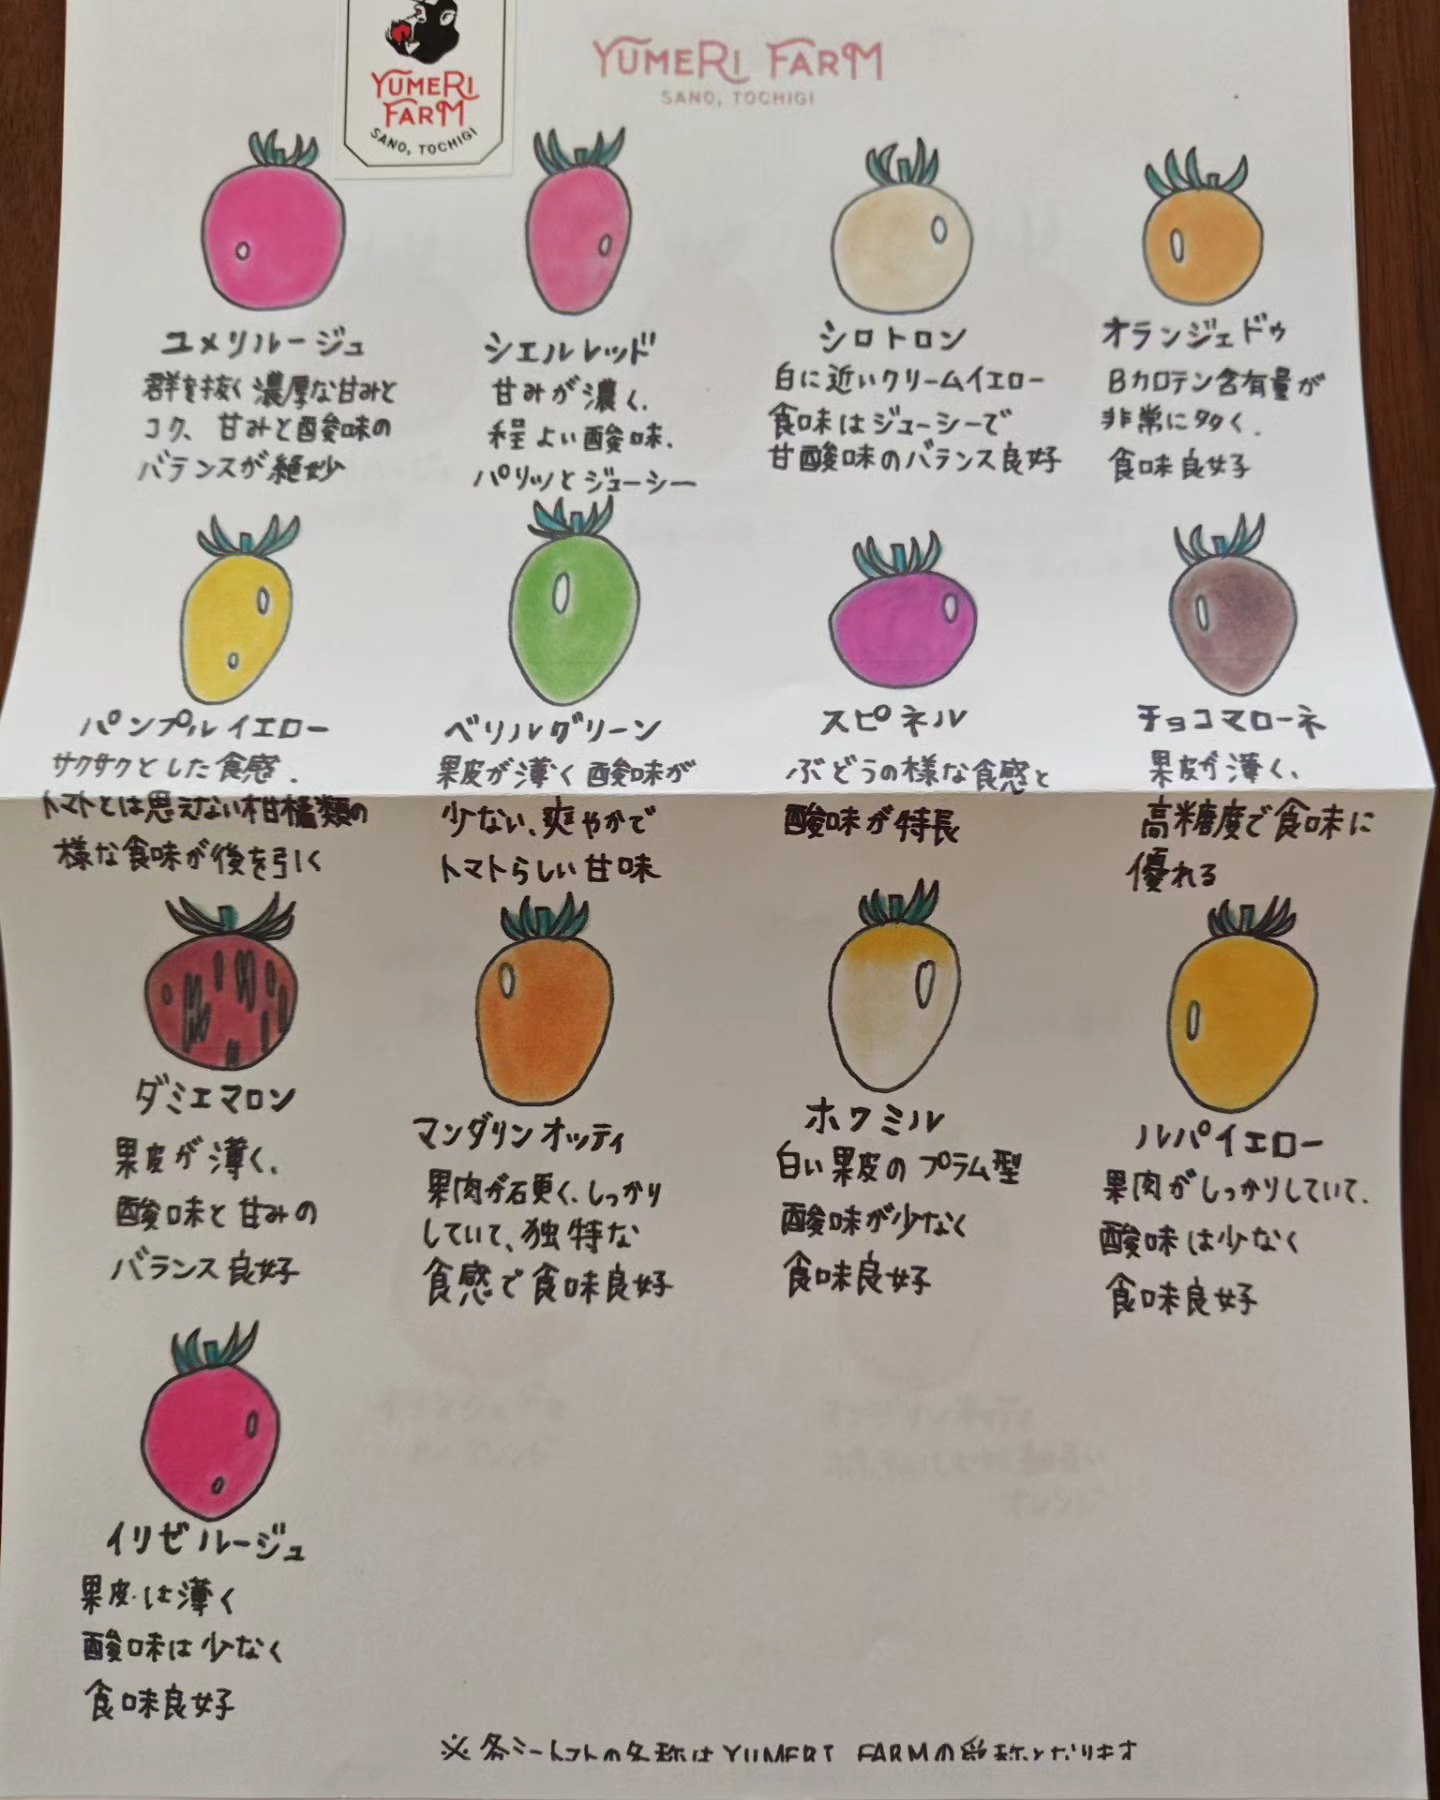 YUMERI
FARM
SANO, TOCHIGI
YUMERI FARM
SANO, TOCHIGI
ユメリルージュ
群を抜く濃厚な甘みと
コク、甘みと酸味の
バランスが絶妙
シエルレッド
甘みが濃く、
程よい酸味、
パリッとジューシー
シロトロン
白に近いクリームイエロー
食味はジューシーで
甘酸味のバランス良好
オランジェドゥ
Bカロテン含有量が
非常に多く、
食味良好
パンプルイエロー
サクサクとした食感、
トマトとは思えない柑橘類の
様な食味が後を引く
ベリルグリーン
果皮が薄く酸味が
少ない、爽やかで
トマトらしい甘味
スピネル
ぶどうの様な食感と
酸味が特長
チョコマローネ
果皮が薄く、
高糖度で食味に
優れる
ダミエマロン
果皮が薄く、
酸味と甘みの
バランス良好
マンダリンオッティ
果肉が硬く、しっかり
していて、独特な
食感で食味良好
ホワミル
白い果皮のプラム型
酸味が少なく
食味良好
ルパイエロー
果肉がしっかりしていて、
酸味は少なく
食味良好
イリゼルージュ
果皮は薄く
酸味は少なく
食味良好
※各ミニトマトの名称はYUMERI FARMの愛称となります